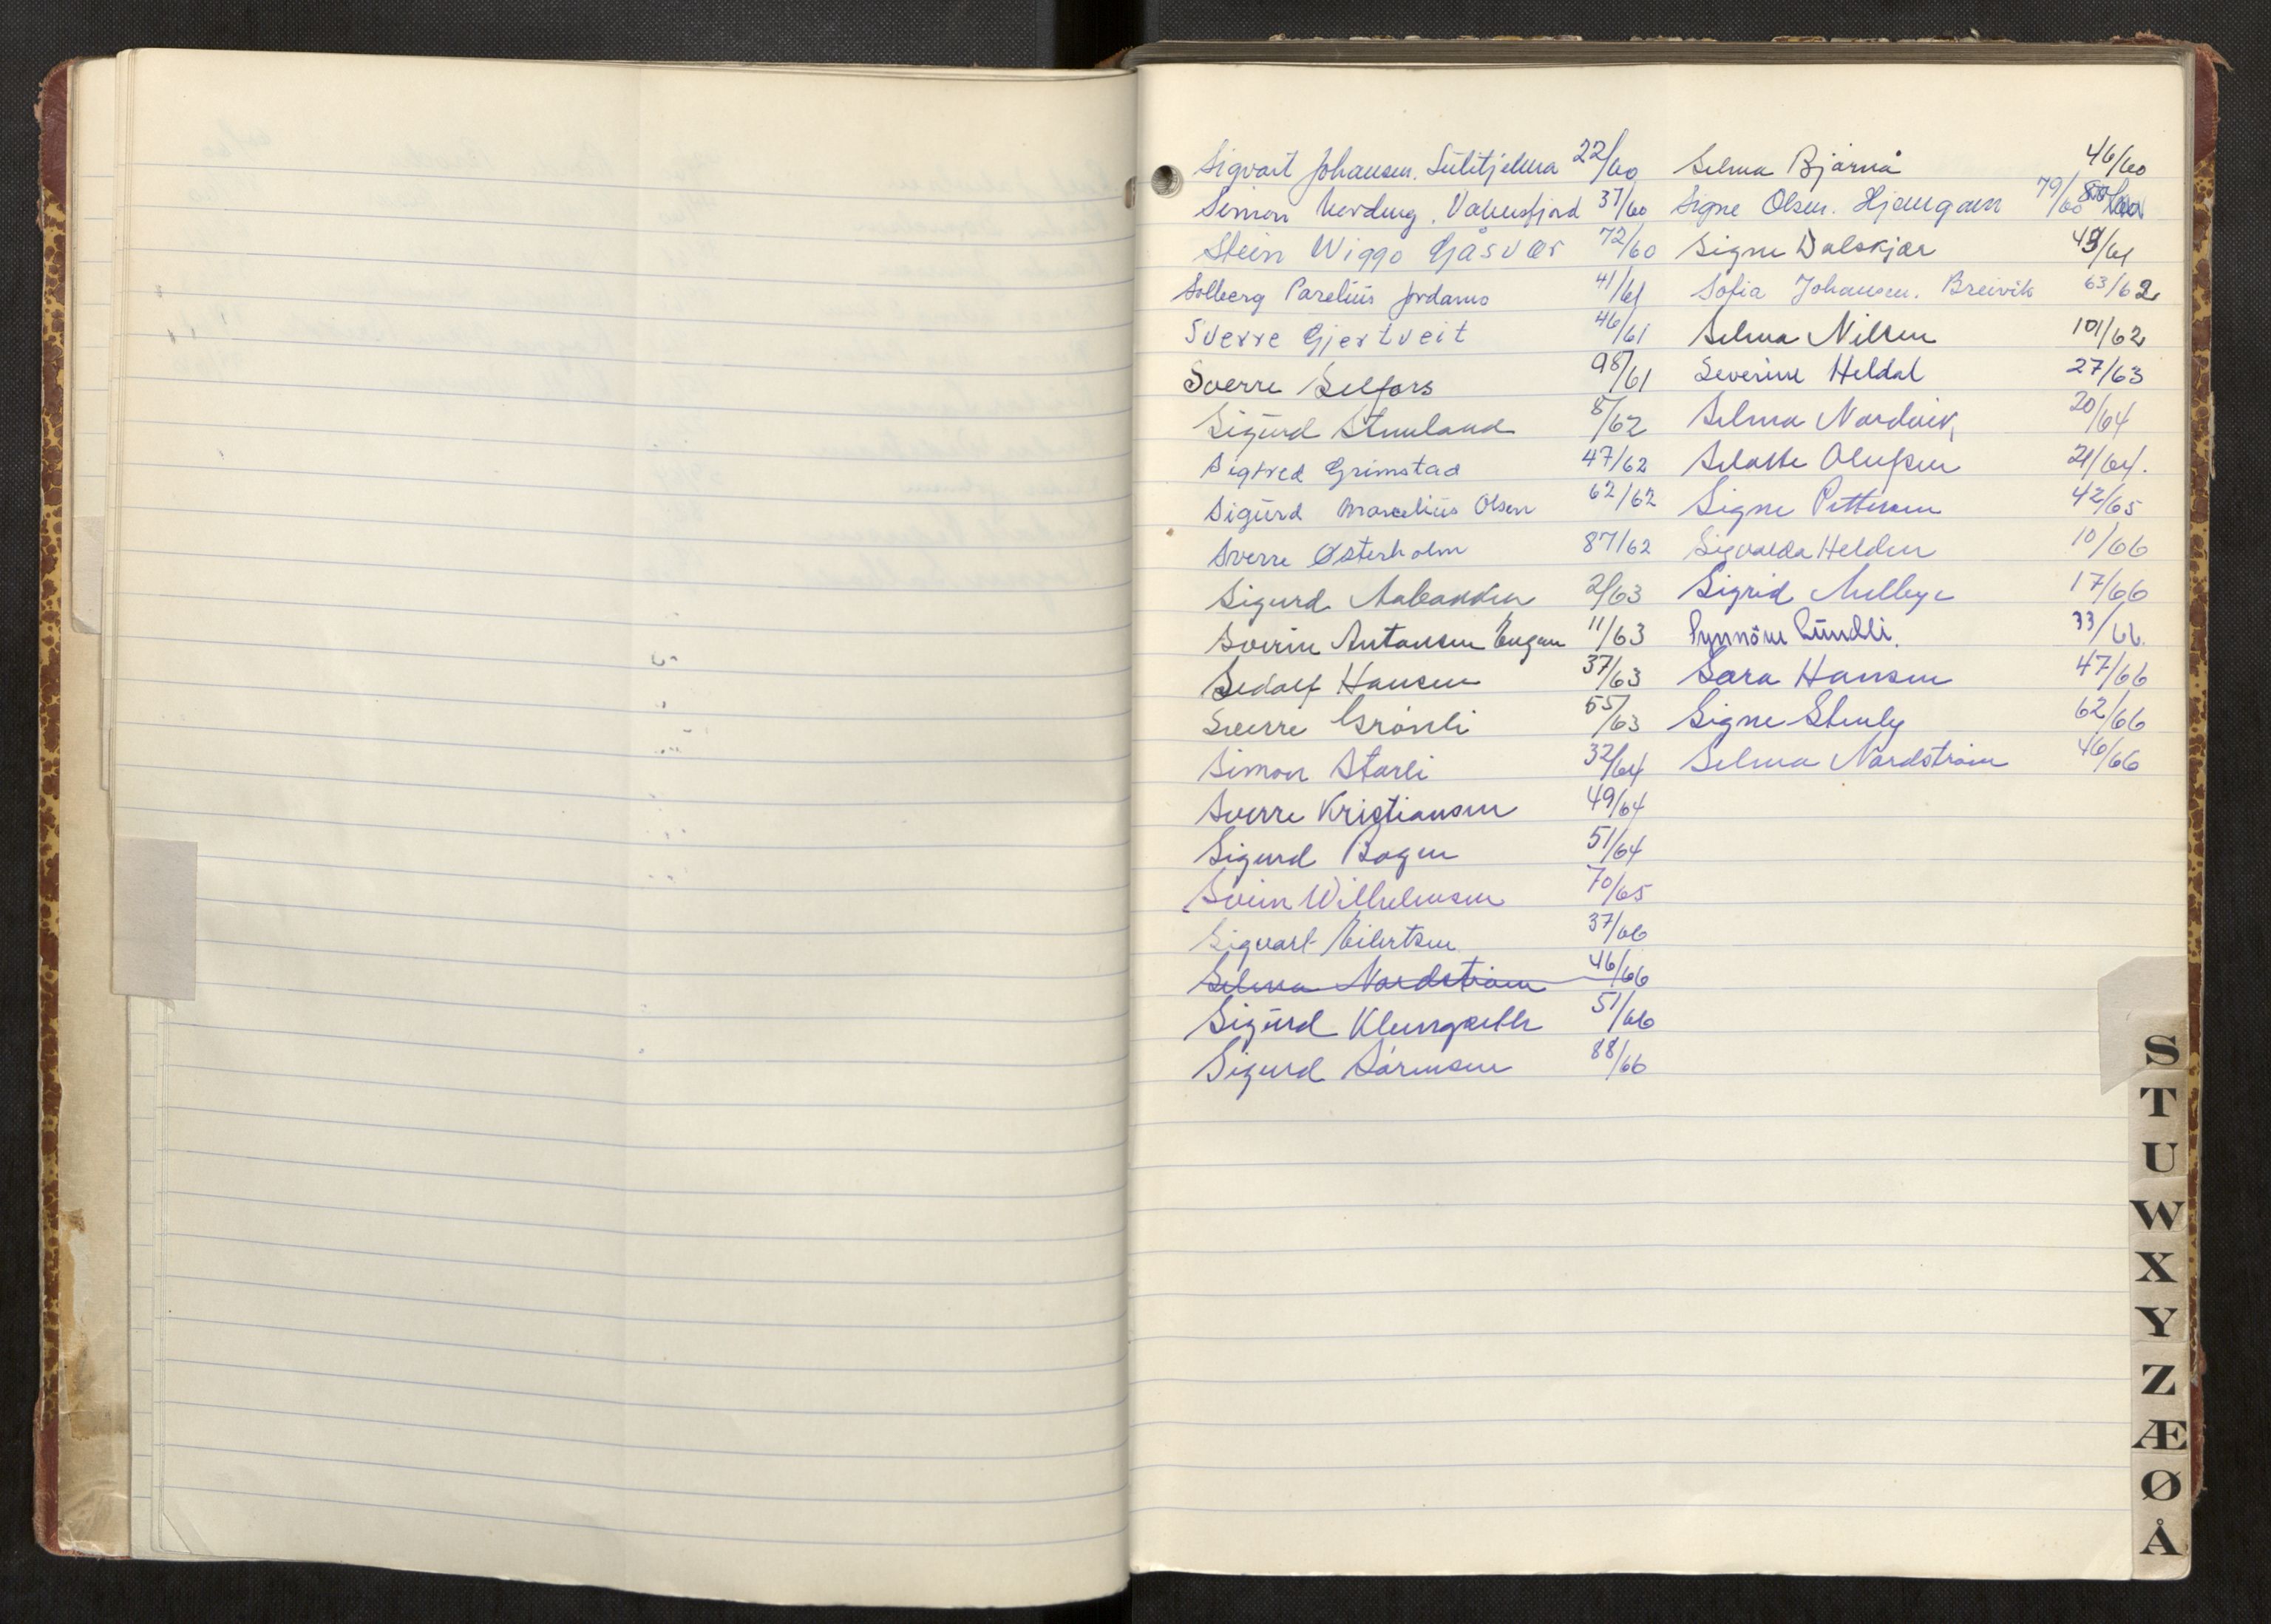 Sigvart Johansen. Sulitjelma 22/60
Simon Nerdung. Valnesfjord 37/60
Stein Wiggo Gåsvær 72/60
Solberg Parelius Jordamo 41/61
Sverre Gjertveit 46/61
Sverre Selfors 98/61
Sigurd Stenland 8/62
Sigfred Grimstad 47/62
Sigurd Marcelius Olsen 62/62
Sverre Østerholm 87/62
Sigurd 2/63
Sverin Antonsen Engan 11/63
Sedolf Hansen 37/63
Sverre Grönli 55/63
Simon Storli 32/64
Sverre Kristiansen 49/64
Sigurd Bogen 51/64
Svein Wilhelmsen 70/65
Sigvart Eilertsen 37/66
Selma Nordström 46/66
Sigurd Klungseth 51/66
Sigurd Sörensen 88/66
Selma Bjørnå 46/60
Signe Olsen. Hjemgam 79/60
Signe Dalskjær 49/61
Sofia Johansen. Breivik 63/62
Selma Nilsen 101/62
Severine Heldal 27/63
Selma Nordvik, 20/64
Olufsen 21/64.
Signe Pettersen 42/65
Sigvalda Helden 10/66
Sigrid Melbye 17/66
Synnöve Lundli. 33/66.
Sara Hansen 47/66
Signe Stenby 62/66
Selma Nordström 46/66
S
T
U
W
X
Y
Z
Æ
Ø
Å